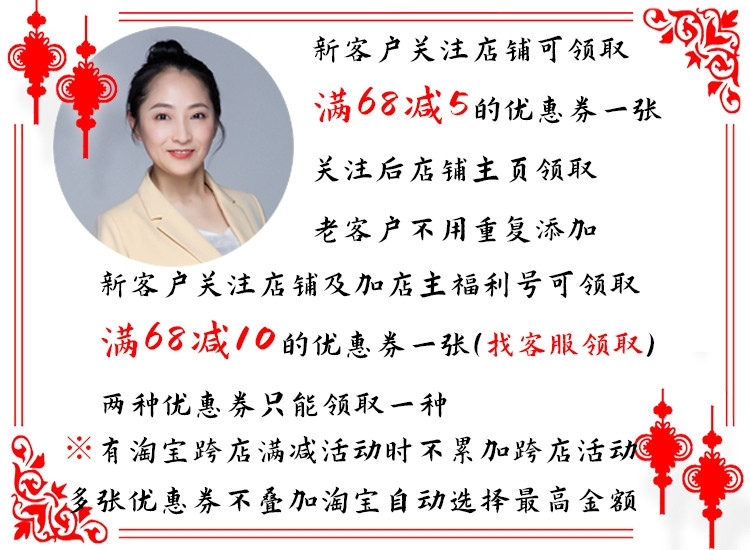 新客户关注店铺可领取
满68减5的优惠券一张
关注后店铺主页领取
老客户不用重复添加
新客户关注店铺及加店主福利号可领取
满68减10的优惠券一张(找客服领取)
两种优惠券只能领取一种
※有淘宝跨店满减活动时不累加跨店活动
多张优惠券不叠加淘宝自动选择最高金额